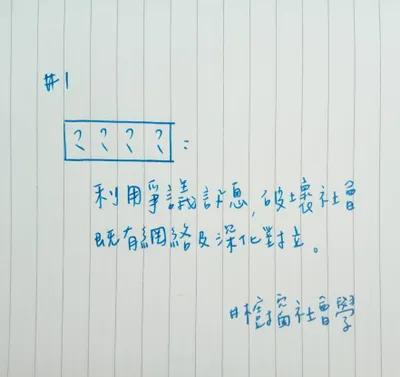 #1
？？？？：
利用爭議訊息，破壞社會
既有網絡及深化對立。
#檀擂社會學